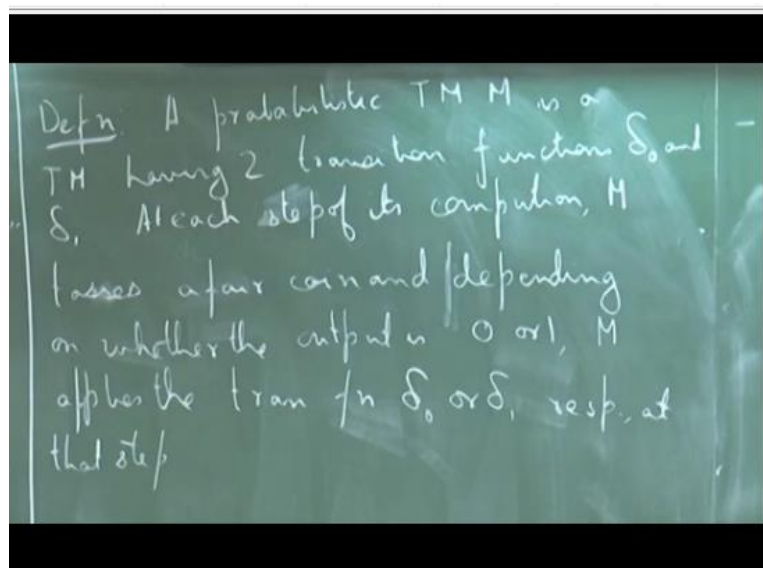 Defn. A probabilistic TM M is a
TM having 2 transition functions δ₀ and
δ₁ At each step of its compution, M
tosses a fair coin and depending
on whether the output is 0 or 1, M
applies the tran fn δ₀ or δ₁ resp., at
that step